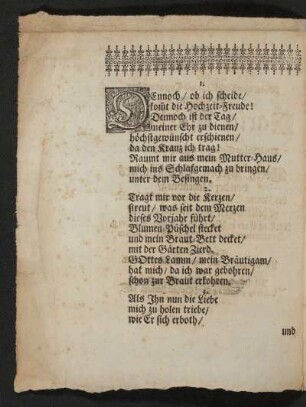 1.
DEnnoch/ ob ich scheide/
kom̃t die Hochzeit-Freude!
Dennoch ist der Tag/
meiner Ehr zu dienen/
höchstgewünscht erschienen/
da den Kranz ich trag!
Raumt mir aus mein Mutter-Haus/
mich ins Schlafgemach zu bringen/
unter dem Besingen.
2.
Tragt mir vor die Kerzen/
streut/ was seit dem Merzen
dieses Vorjahr führt/
Blumen-Püschel stecket
und mein Braut-Bett decket/
mit der Gärten Zierd.
GOttes Lamm/ mein Bräutigam/
hat mich/ da ich war gebohren/
schon zur Braut erkohren.
Als Ihn nun die Liebe
mich zu holen triebe/
wie Er sich erboth/
und